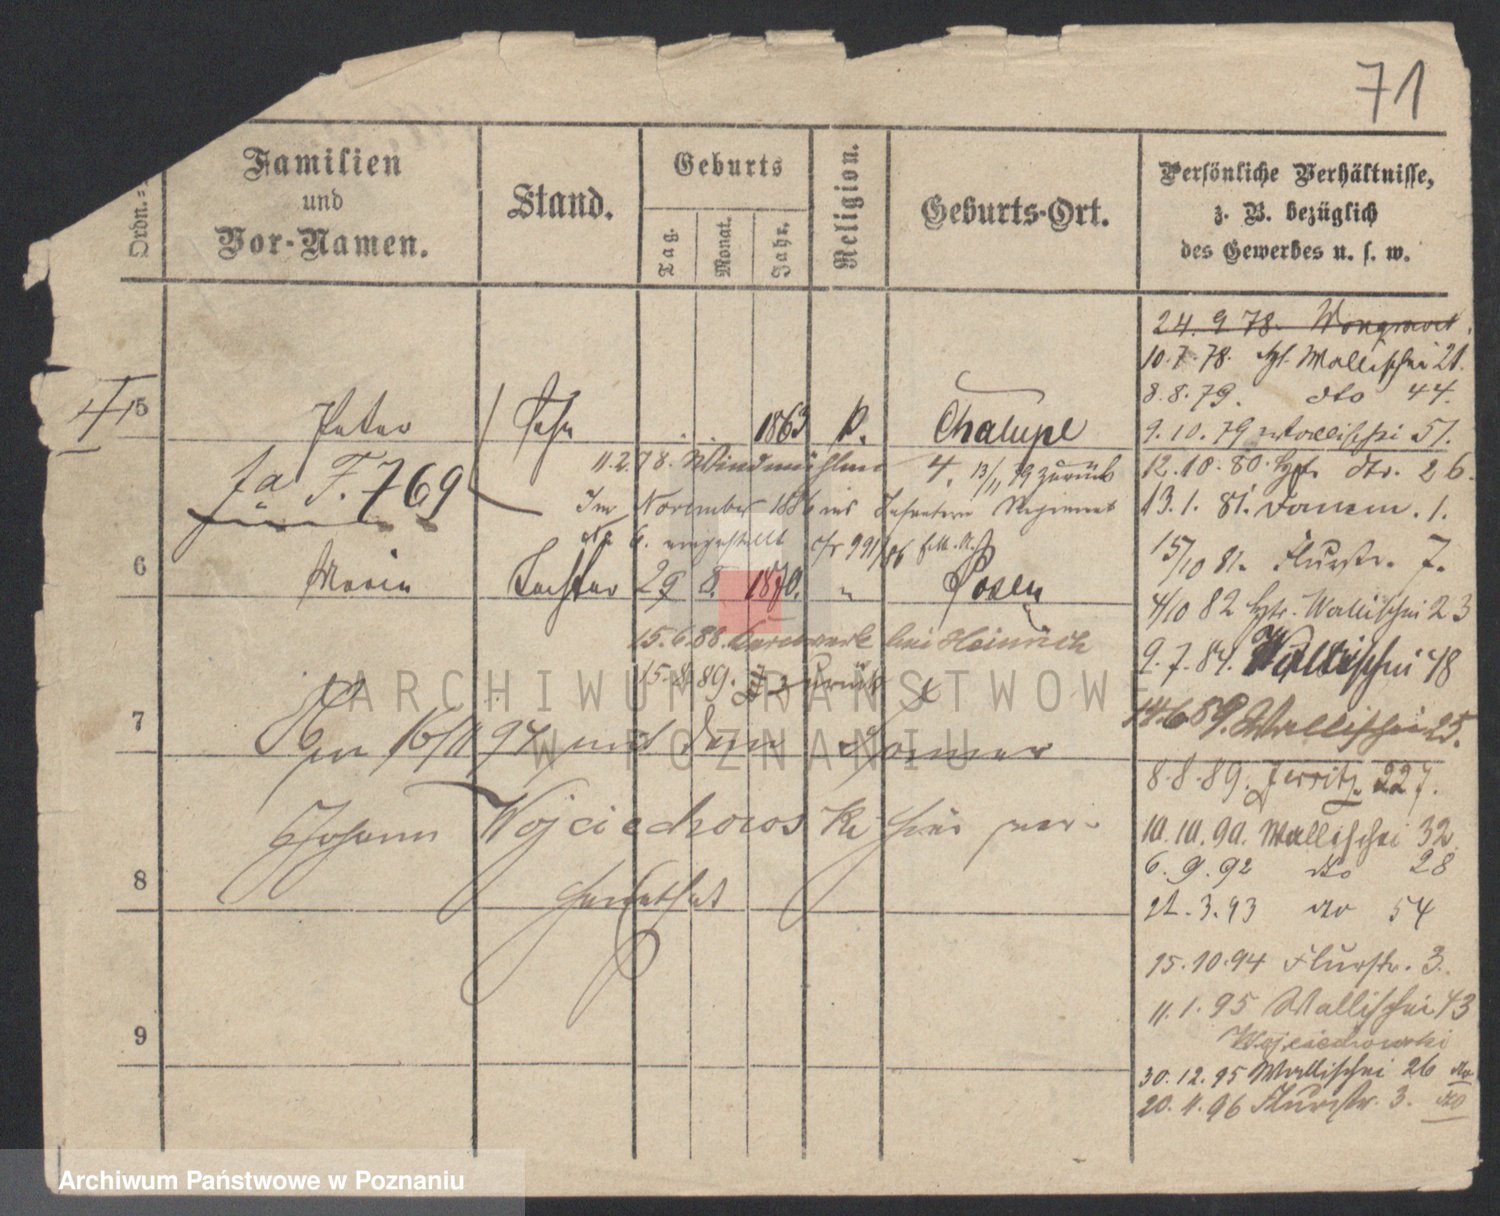 71
Ordn.-
Familien
und
Vor-Namen.
Stand.
Geburts
Tag.
Monat.
Jahr.
Religion.
Geburts-Ort.
Persönliche Verhältnisse,
z. B. bezüglich
des Gewerbes u. s. w.
24.9.78. Wongrowit
10.7.78. Wallischei 21.
8.8.79. dto 44.
9.10.79 Wallischei 51.
12.10.80. 26.
13.1.81. 1.
15/10 81. Flurstr. 7.
4/10 82 Wallischei 23
9.7.84. Wallischei 48
14.6.89. Wallischei 25.
8.8.89. Jersitz 227.
10.10.90. Wallischei 32
6.9.92 do 28
21.3.93 do 54
15.10.94 Flurstr. 3.
11.1.95 Wallischei 43
Wojciechowski
30.12.95 Wallischei 26 do
20.4.96 Flurstr. 3. do
5 Peter Sohn 1863 k. Chalupe
11.2.78. Windmühlen 4, 13/11 79 zurück
F. 769
Im November 1886 ins Infanterie Regiment
No 6. eingestellt cfr 991/86
6 Maria Tochter 29 8. 1870. " Posen
15.6.88. bei Heinrich
15.8.89. zurück
7 Am 16/11 97 mit dem
Johann Wojciechowski hier ver-
heirathet
8
9
ARCHIWUM PAŃSTWOWE
W POZNANIU
Archiwum Państwowe w Poznaniu